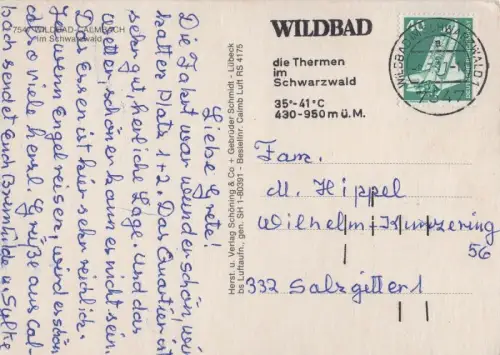 7547 WILDBAD-CALMBACH
im Schwarzwald
Liebe Grete!
Die Fahrt war wunderschön, wir
hatten Platz 1+2. Das Quartier ist
sehr gut, herrliche Lage. Und das
Wetter, schöner kann es nicht sein.
Das Essen ist hier sehr reichlich.
Ja, wenn Engel reisen, wird er schön
also viele herzl. Grüße aus Cal-
bach sendet Euch Brunhilde u. Sylke
Herst. u. Verlag Schöning & Co + Gebrüder Schmidt - Lübeck
bs Luftaufn., gen. SH 1-80391 - Bestellnr. Calmb Luft RS 4175
WILDBAD
die Thermen
im
Schwarzwald
35°-41°C
430-950 m ü. M.
40
WILDBAD SCHWARZWALD 1
7547
Fam.
M. Hippel
Wilhelm-Kunzering
56
332 Salzgitter 1